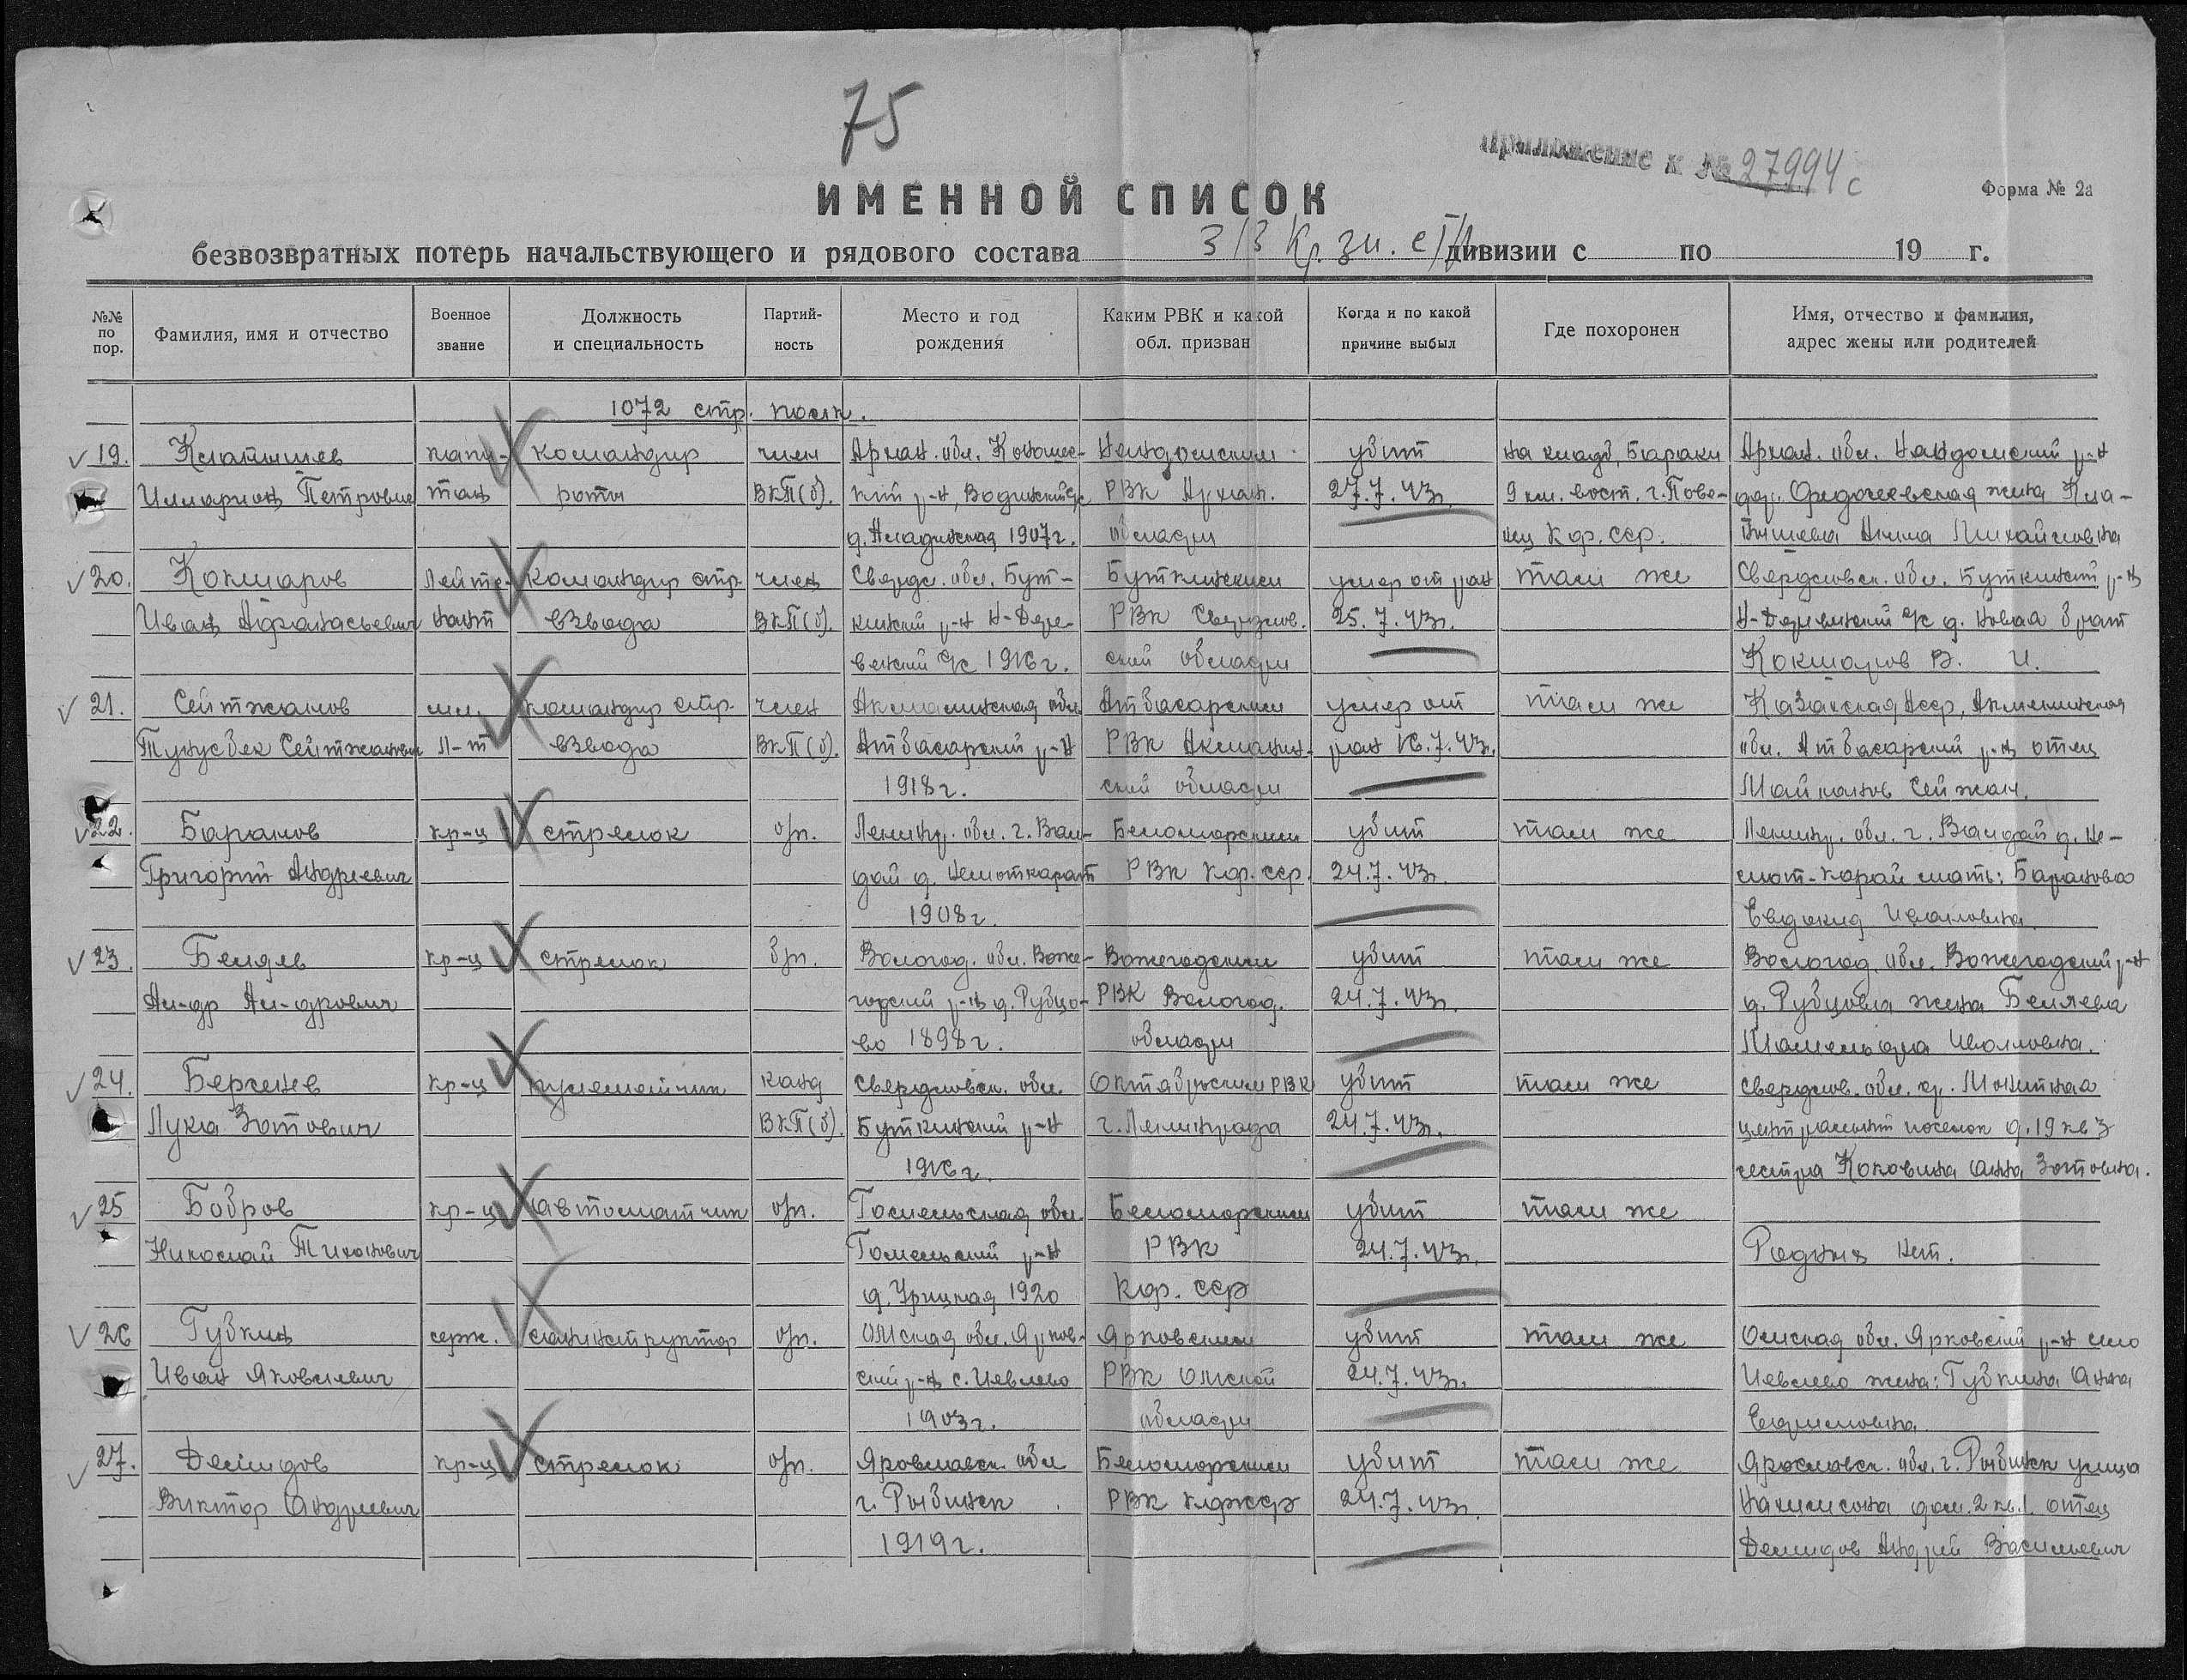 75
Приложение к № 27994с
Форма № 2а
ИМЕННОЙ СПИСОК
безвозвратных потерь начальствующего и рядового состава 313 Кр. Зн. СД дивизии с по 19 г.
№№ по пор. Фамилия, имя и отчество Военное звание Должность и специальность Партийность Место и год рождения Каким РВК и какой обл. призван Когда и по какой причине выбыл Где похоронен Имя, отчество и фамилия, адрес жены или родителей
1072 стр. полк.
19. Клапышев капи- командир член Архан. обл. Коношес- Няндомским убит на клад. Бараки Архан. обл. Няндомский р-н
Илларион Петрович тан роты ВКП(б). кий р-н, Вадинский с/с РВК Архан. 27.7.43г. 9 км. вост. г. Пове- дер. Федосеевская жена Кла-
д. 1907г. области нец Кф. сср. пышева Анна Михайловна
20. Кокшаров Лейте- командир стр. член Свердл. обл. Бут- Буткинским умер от ран там же Свердловск. обл. Буткинский р-н
Иван Афанасьевич нант взвода ВКП(б). кинский р-н Н-Дере- РВК Свердлов. 25.7.43г. Н-Деревенский с/с д. Новая брат
венский с/с 1916г. ской области Кокшаров В. И.
21. Сейтжанов мл. командир стр. член Акмолинская обл. Атбасарским умер от там же Казахская сср, Акмолинская
Тунусбек Сейтжанович Л-т взвода ВКП(б). Атбасарский р-н РВК Акмолин- ран 16.7.43г. обл. Атбасарский р-н отец
1918г. ской области Майканов Сейжан.
22. Баранов кр-ц стрелок б/п. Ленингр. обл. г. Вал- Беломорским убит там же Ленингр. обл. г. Валдай д.
Григорий Андреевич дай д. РВК Кф. сср. 24.7.43г. мать: Баранова
1908г. Евдокия Ивановна
23. Беляев кр-ц стрелок б/п. Вологод. обл. Воже- Вожегодским убит там же Вологод. обл. Вожегодский р-н
Ал-др Ал-дрович годский р-н д. Рубцо- РВК Вологод. 24.7.43г. д. Рубцово жена Беляева
во 1898г. области Ивановна.
24. Берсенев кр-ц пулеметчик канд Свердловск. обл. Октябрьским РВК убит там же Свердлов. обл. гр.
Лука Зотович ВКП(б). Буткинский р-н г. Ленинграда 24.7.43г. центральный поселок д. 19 кв 3
1916г. сестра Коковина Анна Зотовна.
25 Бобров кр-ц автоматчик б/п. Гомельская обл. Беломорским убит там же
Николай Тихонович Гомельский р-н РВК 24.7.43г. Родных нет.
д. Урицкая 1920 Кф. сср
26 Губкин серж. санинструктор б/п. Омская обл. Ярков- Ярковским убит там же Омская обл. Ярковский р-н село
Иван Яковлевич ский р-н с. Иевлево РВК Омской 24.7.43г. Иевлево жена: Губкина Анна
1903г. области Ефимовна
27. Демидов кр-ц стрелок б/п. Яровславск. обл Беломорским убит там же Ярославск. обл. г. Рыбинск улица
Виктор Андреевич г. Рыбинск РВК 24.7.43г. Нахимсона дом. 2 кв. 1. отец
1919г. Демидов Андрей Васильевич